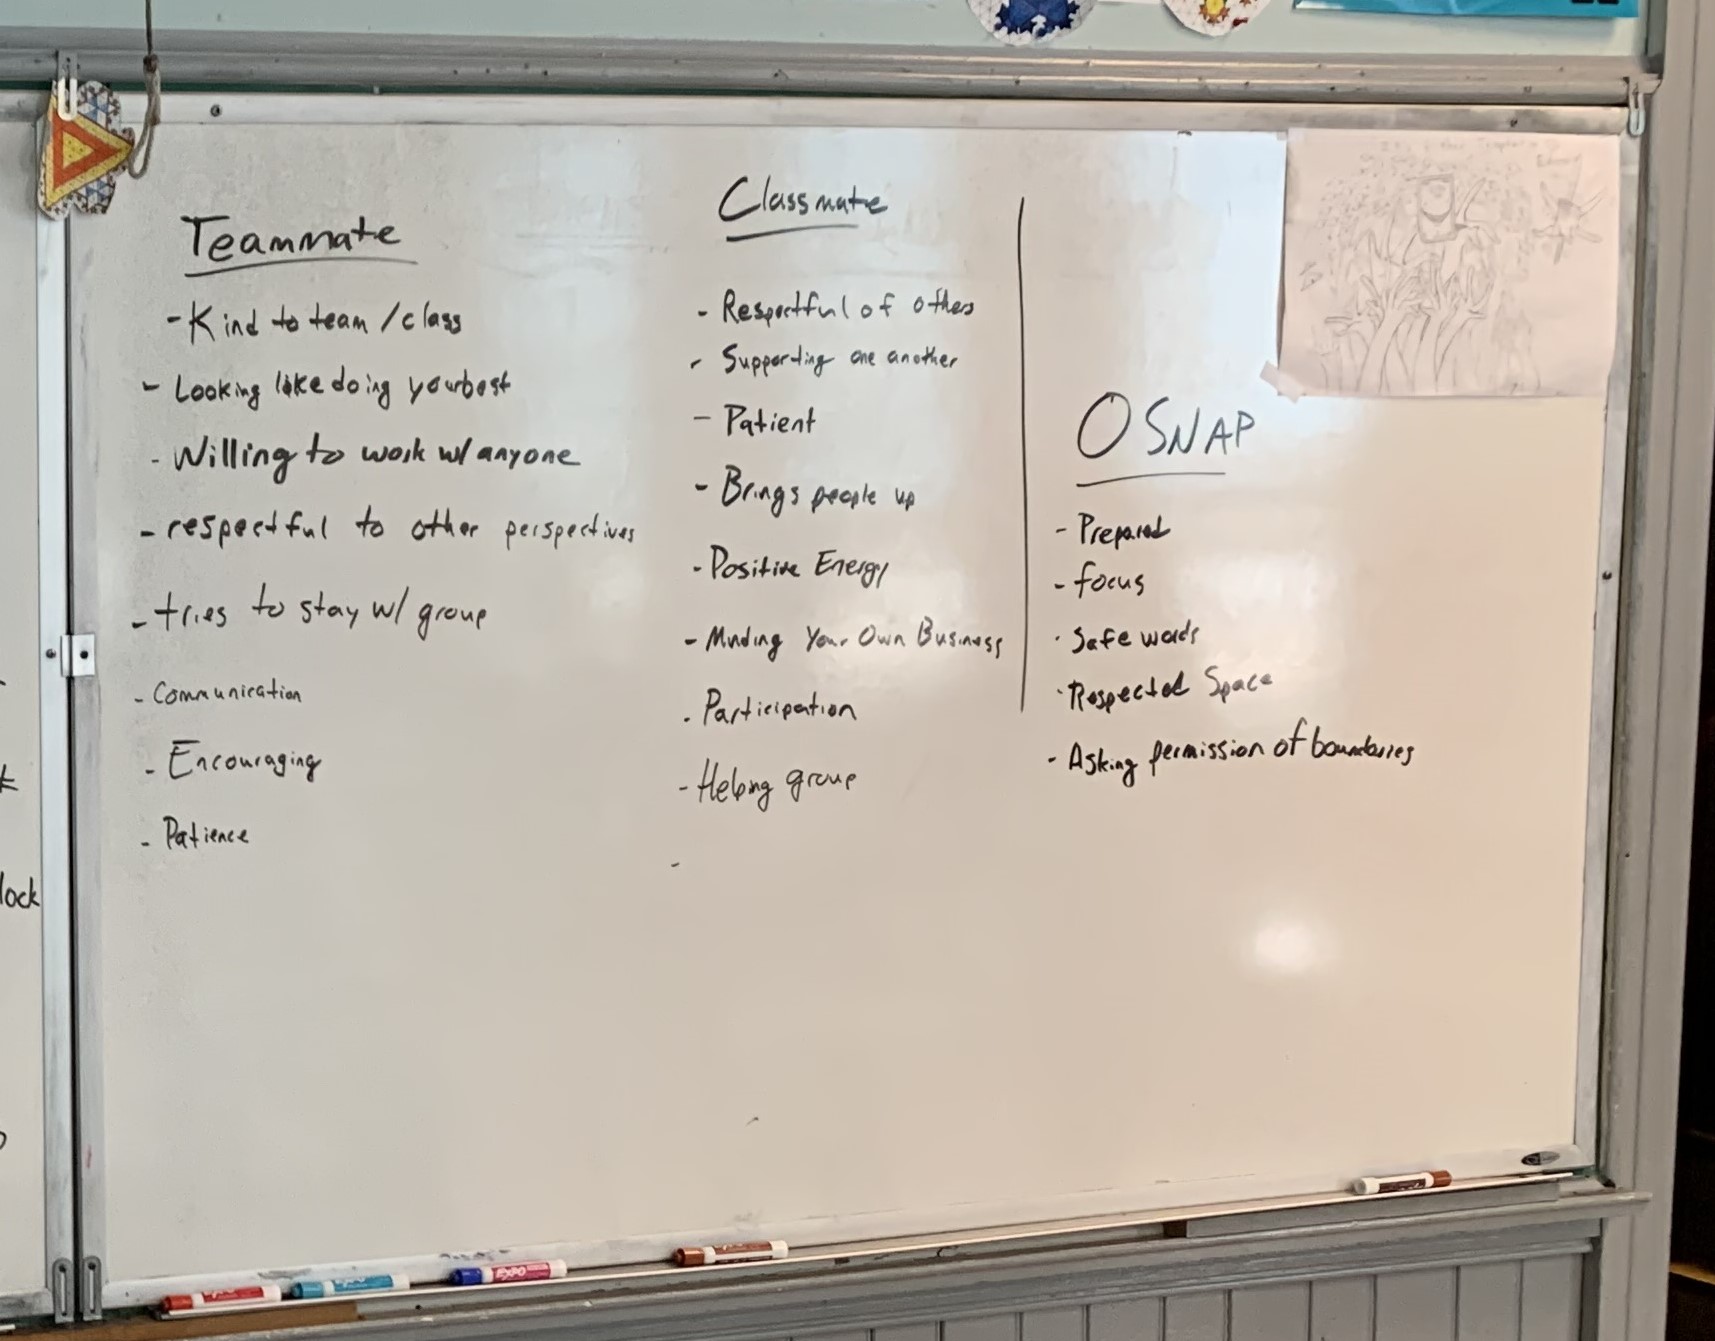 Teammate
- Kind to team / class
- Looking like doing your best
- Willing to work w/ anyone
- respectful to other perspectives
- tries to stay w/ group
- Communication
- Encouraging
- Patience
Classmate
- Respectful of others
- Supporting one another
- Patient
- Brings people up
- Positive Energy
- Minding Your Own Business
- Participation
- Helping group
-
O SNAP
- Prepared
- focus
- Safe words
- Respected Space
- Asking permission of boundaries
lock
EXPO